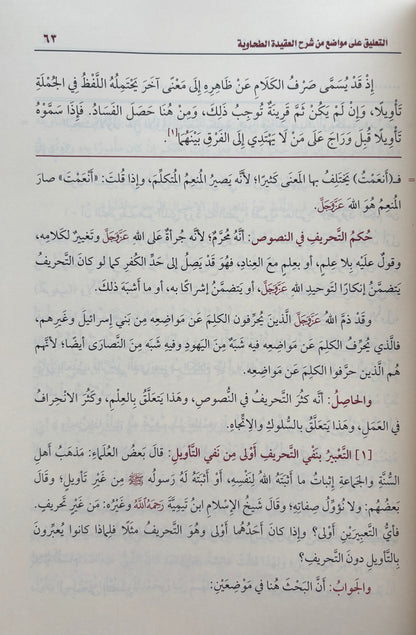 التعليق على مواضع من شرح العقيدة الطحاوية
٦٣
إِذْ قَدْ يُسَمَّى صَرْفُ الكَلَامِ عَنْ ظَاهِرِهِ إِلَى مَعْنًى آخَرَ يَحْتَمِلُهُ اللَّفْظُ فِي الجُمْلَةِ
تَأْوِيلًا، وَإِنْ لَمْ يَكُنْ ثَمَّ قَرِينَةٌ تُوجِبُ ذَلِكَ، وَمِنْ هُنَا حَصَلَ الفَسَادُ. فَإِذَا سَمَّوْهُ
تَأْوِيلًا قُبِلَ وَرَاجَ عَلَى مَنْ لَا يَهْتَدِي إِلَى الفَرْقِ بَيْنَهُمَا[١].
= فـ(أنعَمْتُ) يَختَلِف بها المَعنَى كثيرًا؛ لأنَّه يَصيرُ المُنعِمُ المُتكلِّمَ، وإذا قُلتَ: «أَنْعَمْتَ» صارَ
المُنعِمُ هُوَ اللهَ عَزَّوَجَلَّ.
حُكمُ التَّحريفِ في النصوص: أنَّه مُحرَّمٌ؛ لأنَّه جُرأةٌ على اللهِ عَزَّوَجَلَّ وتَغييرٌ لكَلامِه،
وقولٌ علَيه بِلا عِلمٍ، أو بعِلمٍ معَ العِنادِ، فهُوَ قد يَصِل إلى حَدِّ الكُفرِ كما لو كانَ التَّحريفُ
يَتضمَّنُ إنكارًا لتَوحيدِ اللهِ عَزَّوَجَلَّ، أو يَتضمَّنُ إشراكًا به، أو ما أَشبَهَ ذلك.
وقد ذَمَّ اللهُ عَزَّوَجَلَّ الَّذينَ يُحرِّفون الكلِمَ عن مَواضِعِه مِن بَني إسرائيلَ وغَيرِهم،
فالَّذي يُحرِّفُ الكلِمَ عن مَواضِعِه فيه شَبَهٌ مِنَ اليَهودِ وفيه شَبَهٌ مِنَ النَّصارَى أيضًا؛ لأنَّهم
هُمُ الَّذين حرَّفوا الكلِمَ عن مَواضِعِه.
والحاصِلُ: أنَّه كَثُرَ التَّحريفُ في النُّصوصِ، وهَذا يَتعَلَّقُ بالعِلْمِ، وكَثُرَ الانْحِرافُ
في العَمَلِ، وهَذا يَتعلَّقُ بالسُّلوكِ والاتِّجاهِ.
[١] التَّعْبيرُ بنَفْيِ التَّحريفِ أَوْلى مِن نَفيِ التَّأويلِ: قالَ بَعضُ العُلَماءِ: مَذهَبُ أَهلِ
السُّنَّةِ والجَماعةِ إثباتُ ما أَثبَتَهُ اللهُ لِنَفسِه، أو أَثبَتَهُ لهُ رَسولُه ﷺ مِن غَيْرِ تَأويلٍ؛ وقالَ
بَعضُهم: لا نُؤوِّلُ صِفاتِه؛ وقالَ شَيخُ الإسلامِ ابنُ تَيميَّةَ رَحِمَهُ اللَّهُ وغَيرُه: مِن غَيْرِ تَحريفٍ.
فأيُّ التَّعبيرَيْنِ أَوْلى؟ وإذا كانَ أَحَدُهُما أَوْلى وهُوَ التَّحريفُ مثَلًا فلِماذا كانوا يُعبِّرونَ
بالتَّأويلِ دونَ التَّحريفِ؟
والجَوابُ: أنَّ البَحْثَ هُنا في مَوضِعَيْنِ: =